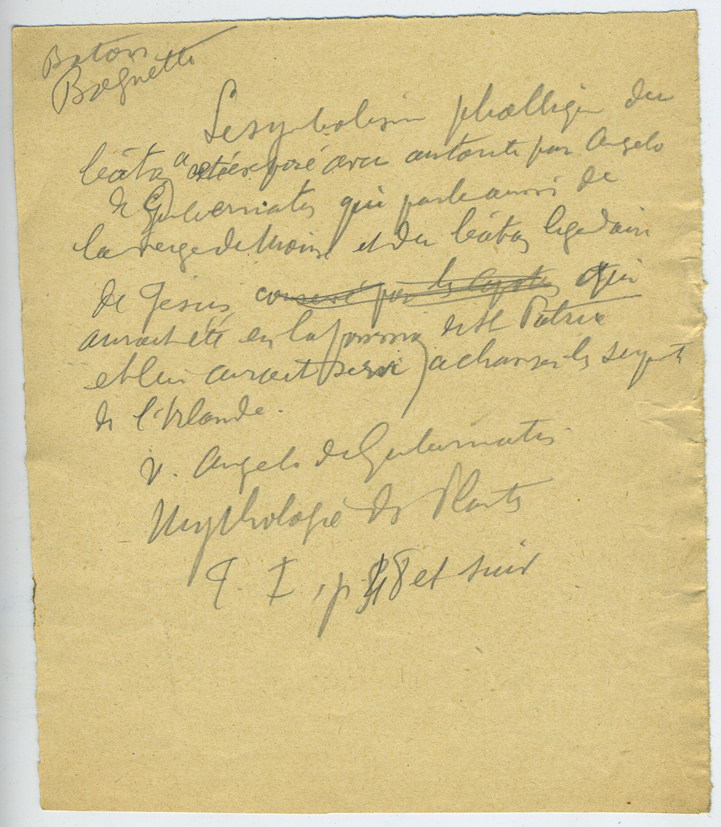 Baton
Baguette
Le symbolisme phallique du
bâton a été exposé avec autorité par Angelo
de Gubernatis qui parle aussi de
la verge de Moïse et du bâton légendaire
de Jésus conservé par les qui
aurait été en la possession de St Patrice
et lui aurait servi à chasser les serpents
de l'Irlande.
V. Angelo de Gubernatis
Mythologie des Plantes
T. I, p. 48 et suiv